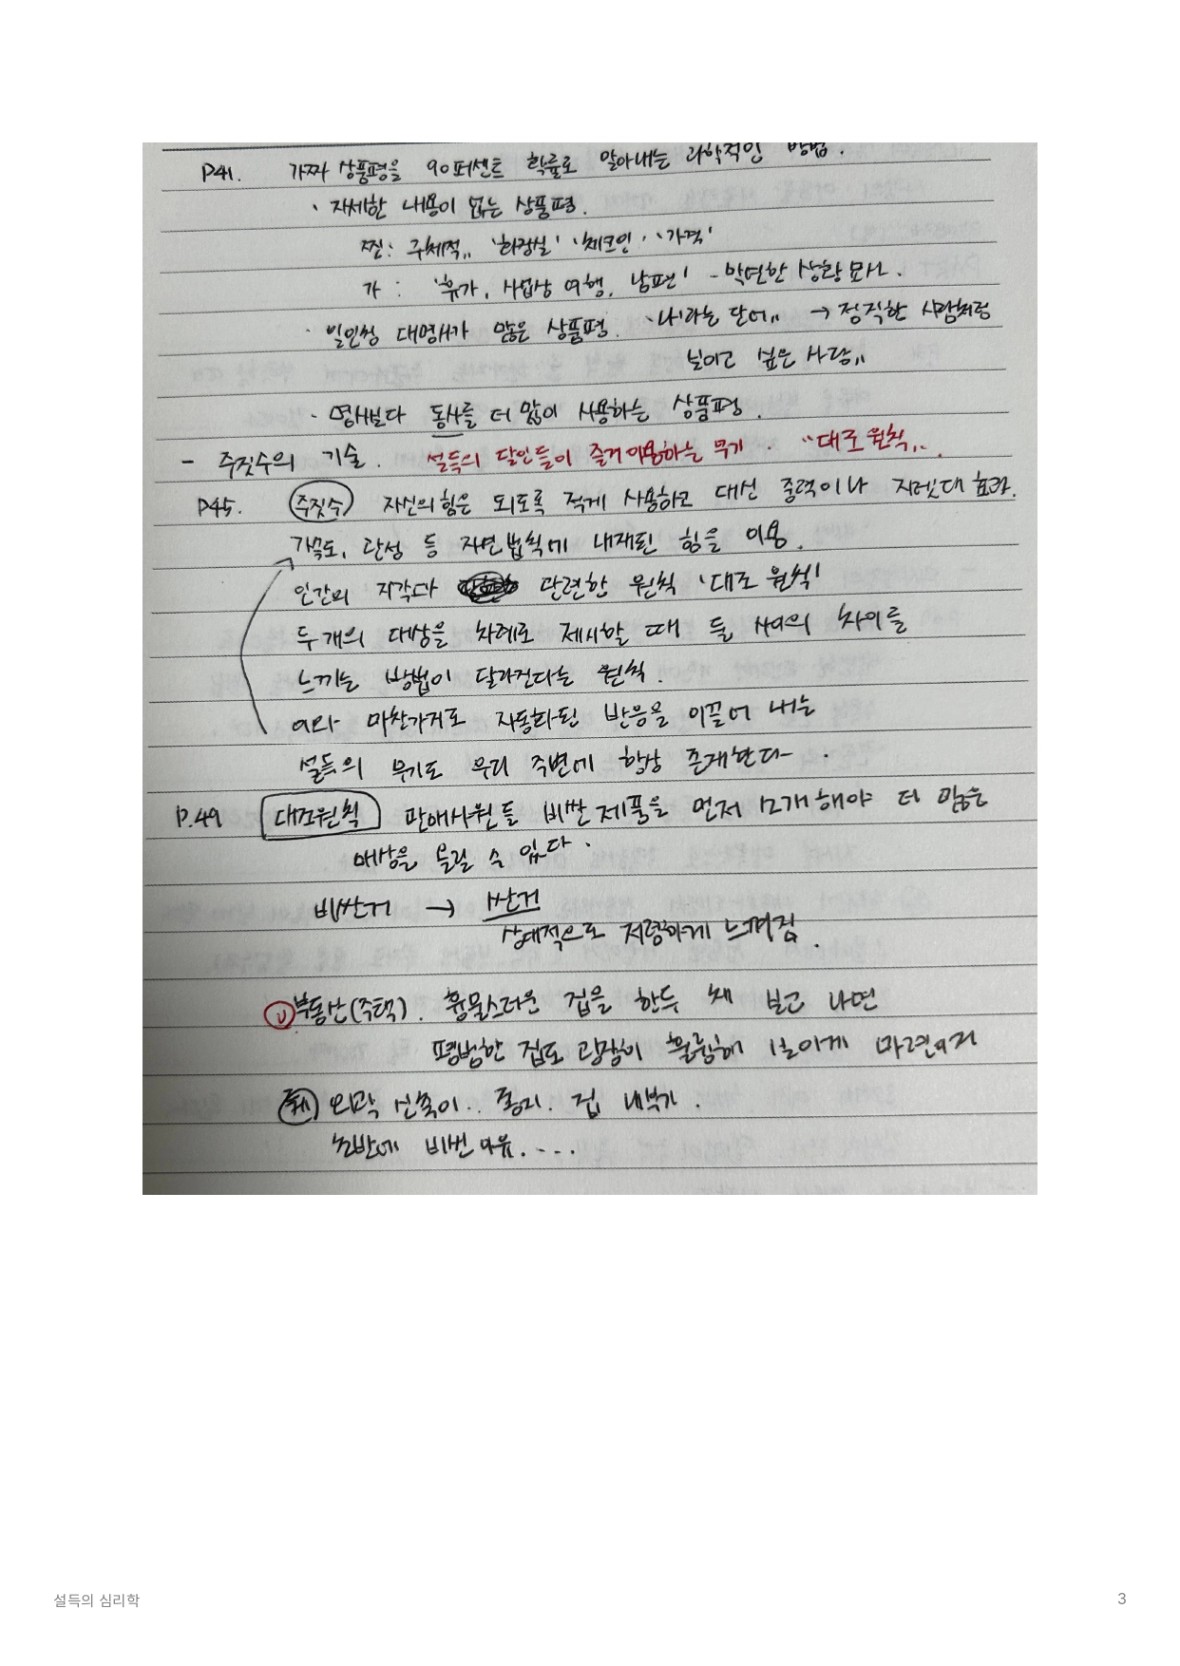 P41. 가짜 상품평을 90퍼센트 확률로 알아내는 과학적인 방법.
· 자세한 내용이 없는 상품평.
찐: 구체적,, '화장실' '체크인' '가격'
가 : '휴가, 사업상 여행, 남편' - 막연한 상황 묘사.
· 일인칭 대명사가 많은 상품평. '나'라는 단어,, → 정직한 사람처럼
보이고 싶은 사람,,
· 명사보다 동사를 더 많이 사용하는 상품평.
- 주짓수의 기술. 설득의 달인들이 즐겨 이용하는 무기. "대조 원칙,,.
P45. 주짓수 자신의 힘은 되도록 적게 사용하고 대신 중력이나 지렛대 효과.
가속도, 관성 등 자연법칙에 내재된 힘을 이용.
인간의 지각과 관련한 원칙 '대조 원칙'
두 개의 대상을 차례로 제시할 때 둘 사이의 차이를
느끼는 방법이 달라진다는 원칙.
이와 마찬가지로 자동화된 반응을 이끌어 내는
설득의 무기도 우리 주변에 항상 존재한다.
P.49 대조원칙 판매사원들 비싼 제품을 먼저 소개해야 더 많은
매상을 올릴 수 있다.
비싼거 → 싼거
상대적으로 저렴하게 느껴짐.
부동산(주택). 흉물스러운 집을 한두 채 보고 나면
평범한 집도 굉장히 훌륭해 보이게 마련이지
외곽 신축이.. 집 내부가.
초반에 비번 마음. ...
설득의 심리학
3